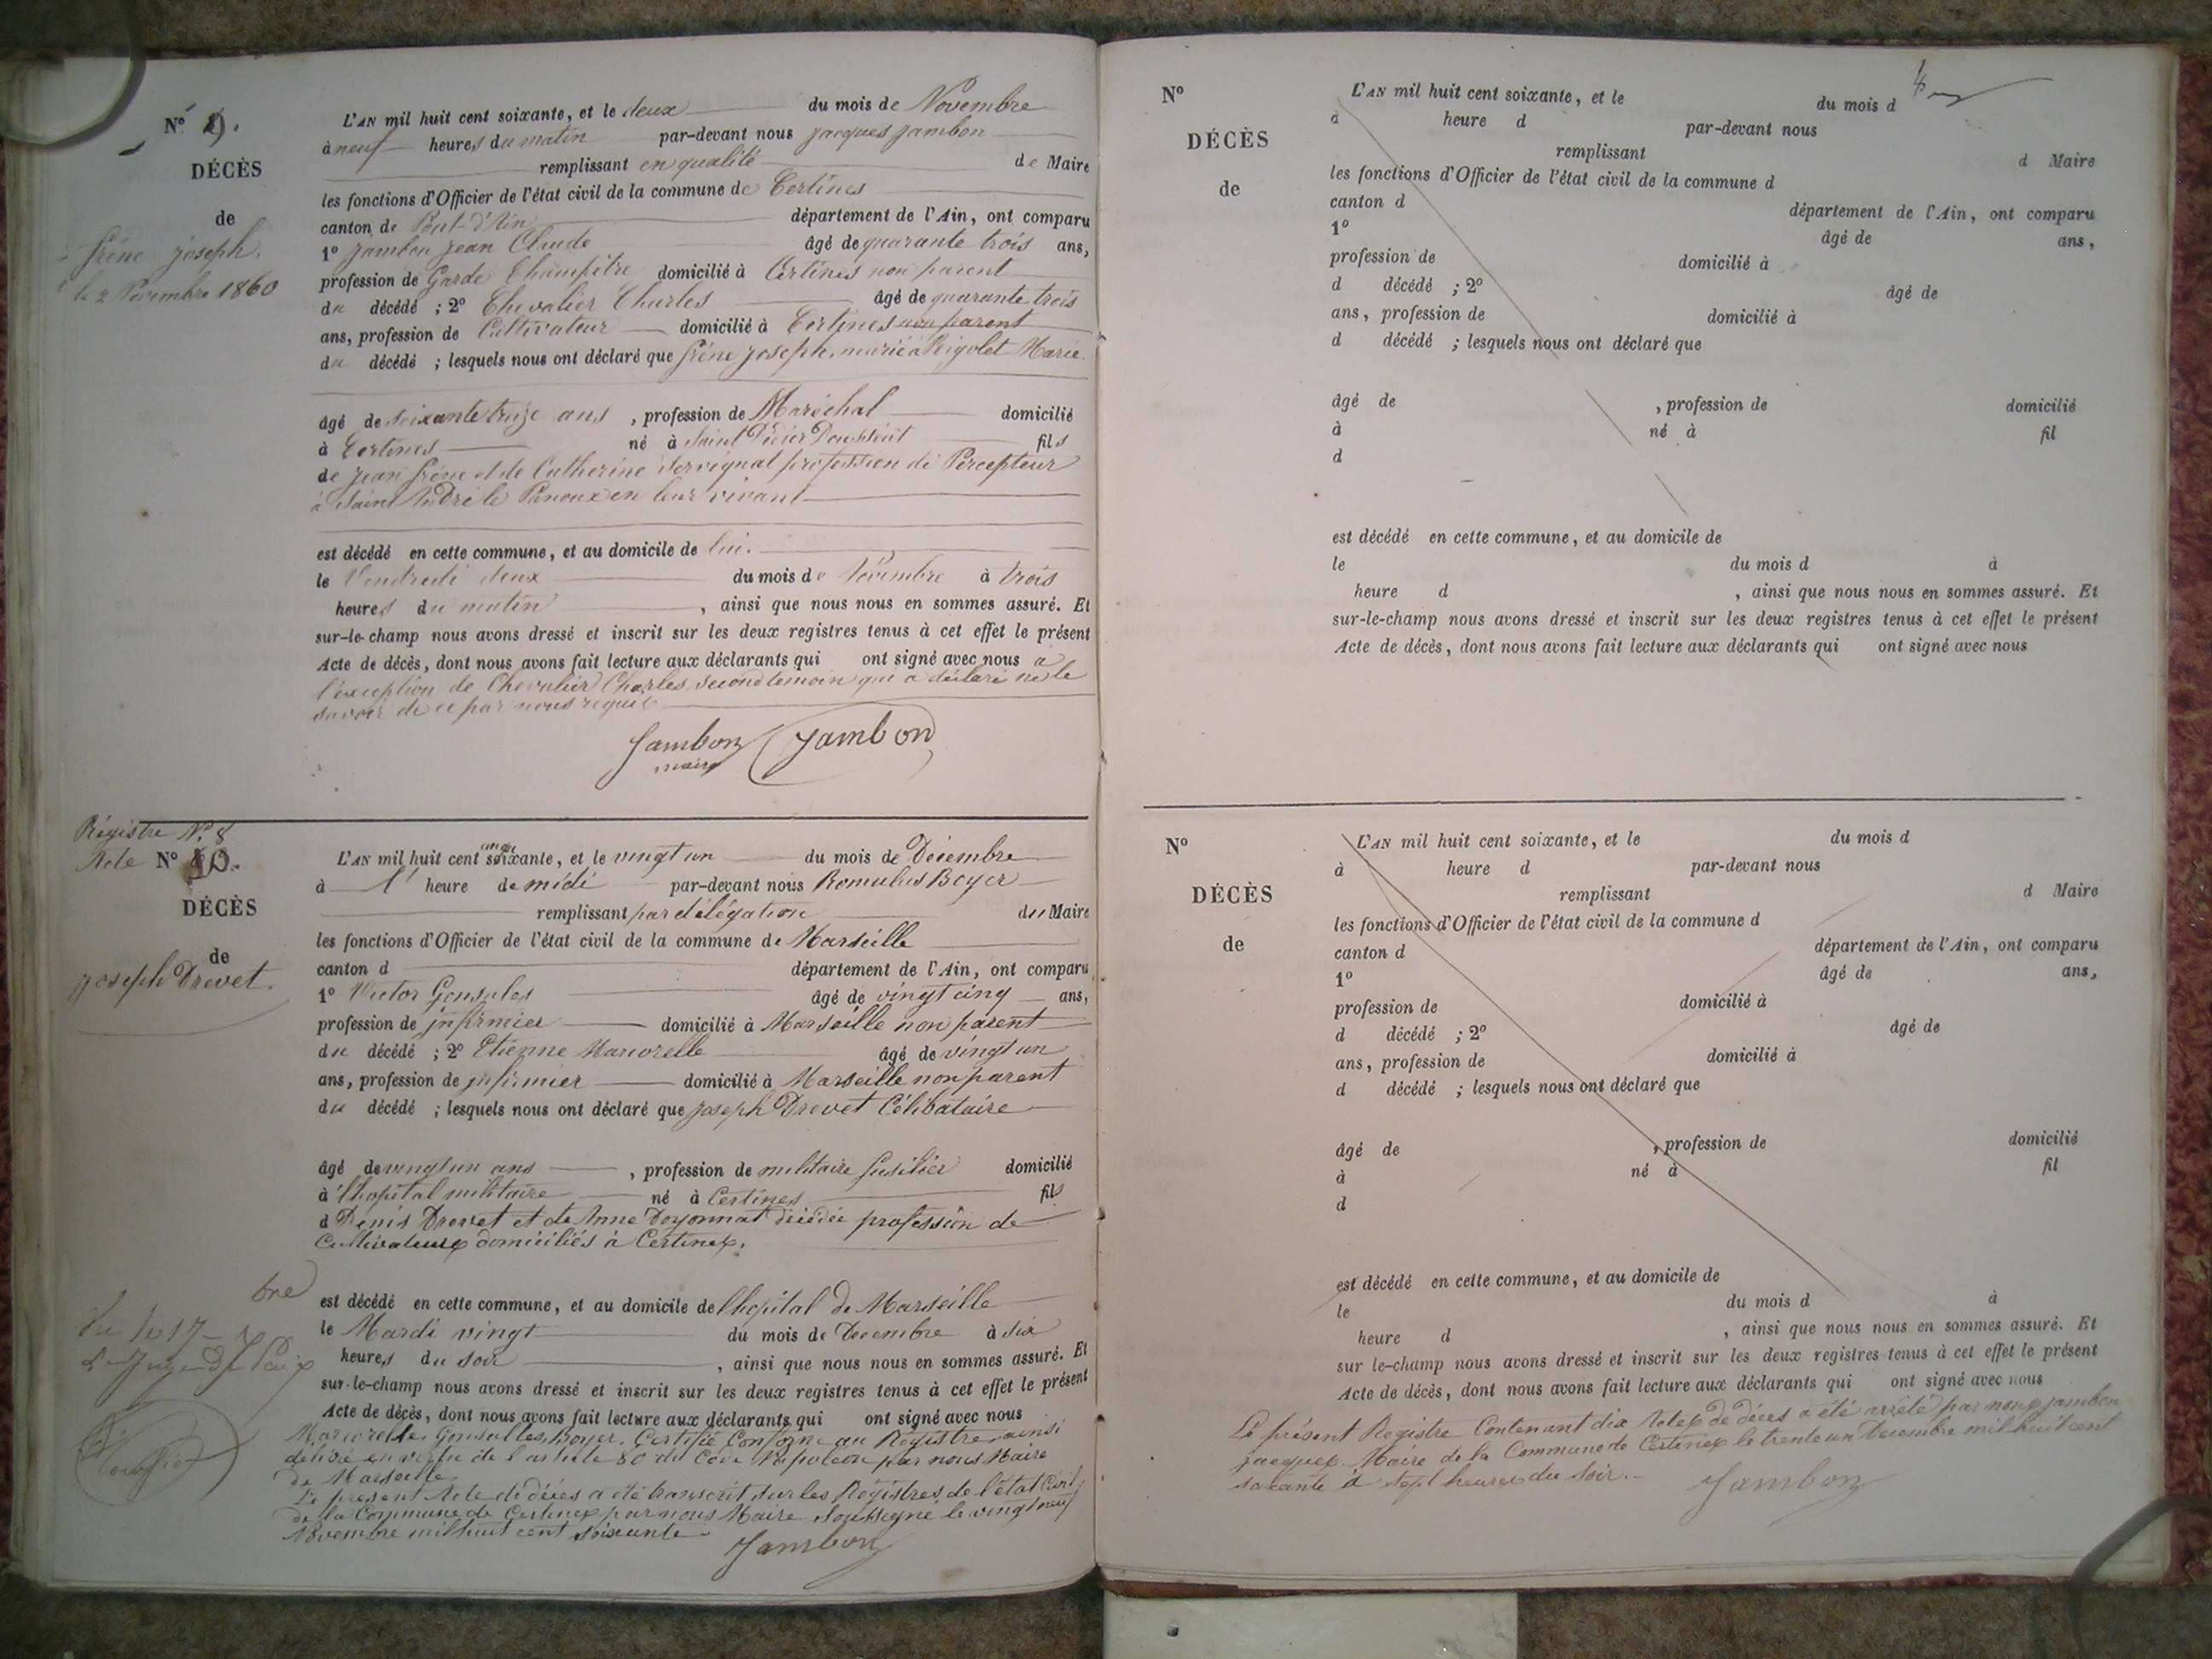 N° 9.
DÉCÈS
de
Frène joseph.
le 2 Novembre 1860
L'AN mil huit cent soixante, et le deux du mois de Novembre
à neuf heures du matin par-devant nous jacques jambon
remplissant en qualité de Maire
les fonctions d'Officier de l'état civil de la commune de Certines
canton de Pont-d'Ain département de l'Ain, ont comparu
1° jambon jean Claude âgé de quarante trois ans,
profession de Garde Champêtre domicilié à Certines non parent
du décédé ; 2° Chevalier Charles âgé de quarante trois
ans, profession de Cultivateur domicilié à Certines non parent
du décédé ; lesquels nous ont déclaré que Frène joseph, marié à Rigolet Marie
âgé de soixante treize ans, profession de Maréchal domicilié
à Certines né à Saint Didier fils
de jean Frène et de Catherine profession de Percepteur
à Saint André le Panoux en leur vivant
est décédé en cette commune, et au domicile de lui.
le Vendredi deux du mois de Novembre à trois
heures du matin, ainsi que nous nous en sommes assuré. Et
sur-le-champ nous avons dressé et inscrit sur les deux registres tenus à cet effet le présent
Acte de décès, dont nous avons fait lecture aux déclarants qui ont signé avec nous a
l'exception de Chevalier Charles second temoin qui a déclaré ne le
savoir de ce par nous requis
Jambon jambon
maire
Régistre N° 8
Acte N° 10.
DÉCÈS
de
joseph Drevet.
L'AN mil huit cent soixante, et le vingt un du mois de Décembre
à l' heure de midi par-devant nous Romulus Boyer
remplissant par délégation du Maire
les fonctions d'Officier de l'état civil de la commune de Marseille
canton d département de l'Ain, ont comparu
1° Victor Gonsales âgé de vingt cinq ans,
profession de infirmier domicilié à Marseille non parent
du décédé ; 2° Etienne Marorelle âgé de vingt un
ans, profession de infirmier domicilié à Marseille non parent
du décédé ; lesquels nous ont déclaré que joseph Drevet Célibataire
âgé de vingt un ans, profession de militaire fusilier domicilié
à l'hopital militaire né à Certines fils
d Denis Drevet et de Anne Doyonnat décédée profession de
Cultivateurs domiciliés à Certines.
est décédé en cette commune, et au domicile de l'hopital de Marseille
le Mardi vingt du mois de Decembre à six
heures du soir, ainsi que nous nous en sommes assuré. Et
sur-le-champ nous avons dressé et inscrit sur les deux registres tenus à cet effet le présent
Acte de décès, dont nous avons fait lecture aux déclarants qui ont signé avec nous
Marorelle, Gonsalles, boyer. Certifié Conforme au Registre ainsi
délivré en vertu de l'article 80 du Code Napoleon par nous Maire
de Marseille
Le present Acte de décès a été transcrit sur les Registres de l'état Civil
de la Commune de Certines par nous Maire Soussigné le vingt neuf
Novembre mil huit cent soixante
Jambon
N°
DÉCÈS
de
L'AN mil huit cent soixante, et le du mois d
à heure d par-devant nous
remplissant d Maire
les fonctions d'Officier de l'état civil de la commune d
canton d département de l'Ain, ont comparu
1° âgé de ans,
profession de domicilié à
d décédé ; 2° âgé de
ans, profession de domicilié à
d décédé ; lesquels nous ont déclaré que
âgé de , profession de domicilié
à né à fil
d
est décédé en cette commune, et au domicile de
le du mois d à
heure d , ainsi que nous nous en sommes assuré. Et
sur-le-champ nous avons dressé et inscrit sur les deux registres tenus à cet effet le présent
Acte de décès, dont nous avons fait lecture aux déclarants qui ont signé avec nous
N°
DÉCÈS
de
L'AN mil huit cent soixante, et le du mois d
à heure d par-devant nous
remplissant d Maire
les fonctions d'Officier de l'état civil de la commune d
canton d département de l'Ain, ont comparu
1° âgé de ans,
profession de domicilié à
d décédé ; 2° âgé de
ans, profession de domicilié à
d décédé ; lesquels nous ont déclaré que
âgé de , profession de domicilié
à né à fil
d
est décédé en cette commune, et au domicile de
le du mois d à
heure d , ainsi que nous nous en sommes assuré. Et
sur le-champ nous avons dressé et inscrit sur les deux registres tenus à cet effet le présent
Acte de décès, dont nous avons fait lecture aux déclarants qui ont signé avec nous
Le présent Registre Contenant dix Actes de décès a été arrêté par nous jambon
jacques Maire de la Commune de Certines le trente un Decembre mil huit cent
soixante à sept heures du Soir.
Jambon